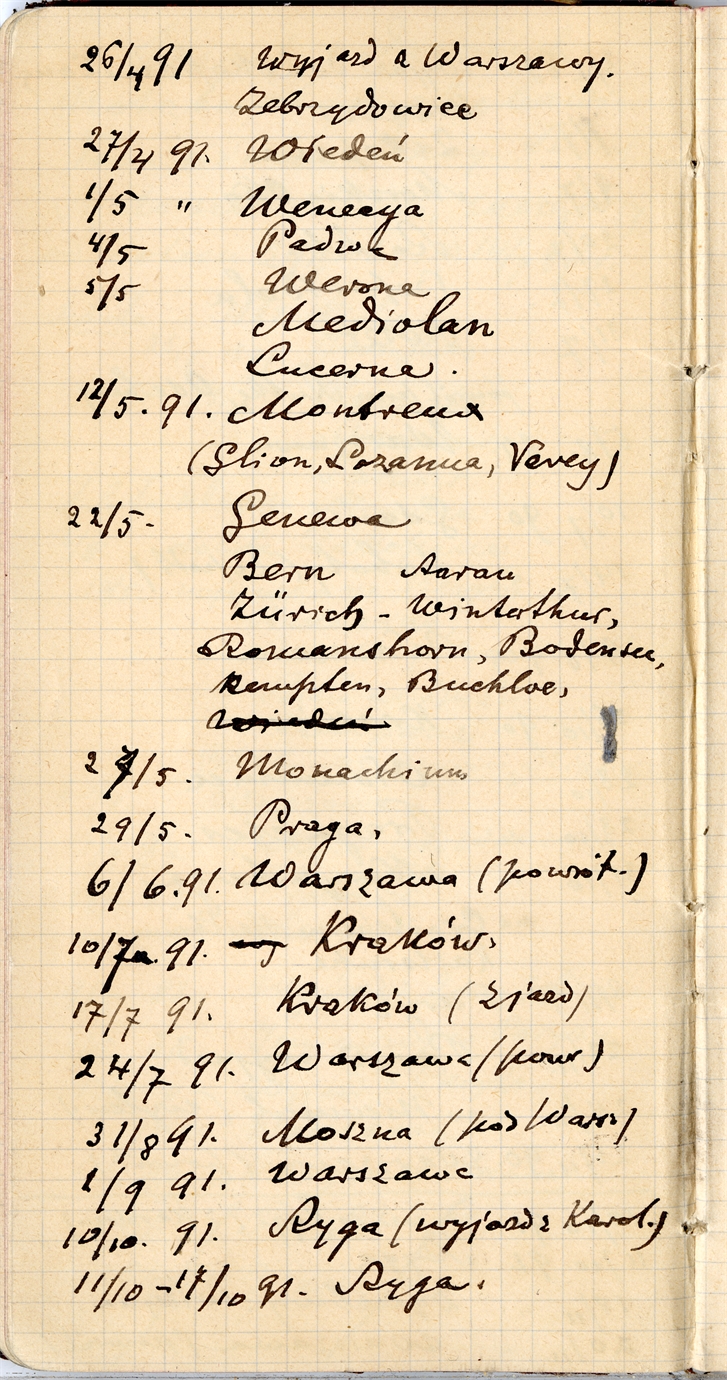 26/4 91 Wyjazd z Warszawy.
Zebrzydowice
27/4 91. Wiedeń
1/5 " Wenecya
4/5 Padwa
5/5 Werona
Mediolan
Lucerna.
12/5. 91. Montreux
(Glion, Lozanna, Vevey)
22/5. Genewa
Bern Aarau
Zürich - Winterthur,
Romanshorn, Bodensee,
Kempten, Buchloe,
Wiedeń
27/5. Monachium
29/5. Praga,
6/6.91. Warszawa (powrót.)
10/7 91. Kraków.
17/7 91. Kraków (Zjazd)
24/7 91. Warszawa (powr)
31/8 91. Moszna (pod Warsz)
1/9 91. Warszawa
10/10. 91. Ryga (wyjazd z Karol.)
11/10 - 17/10 91. Ryga.